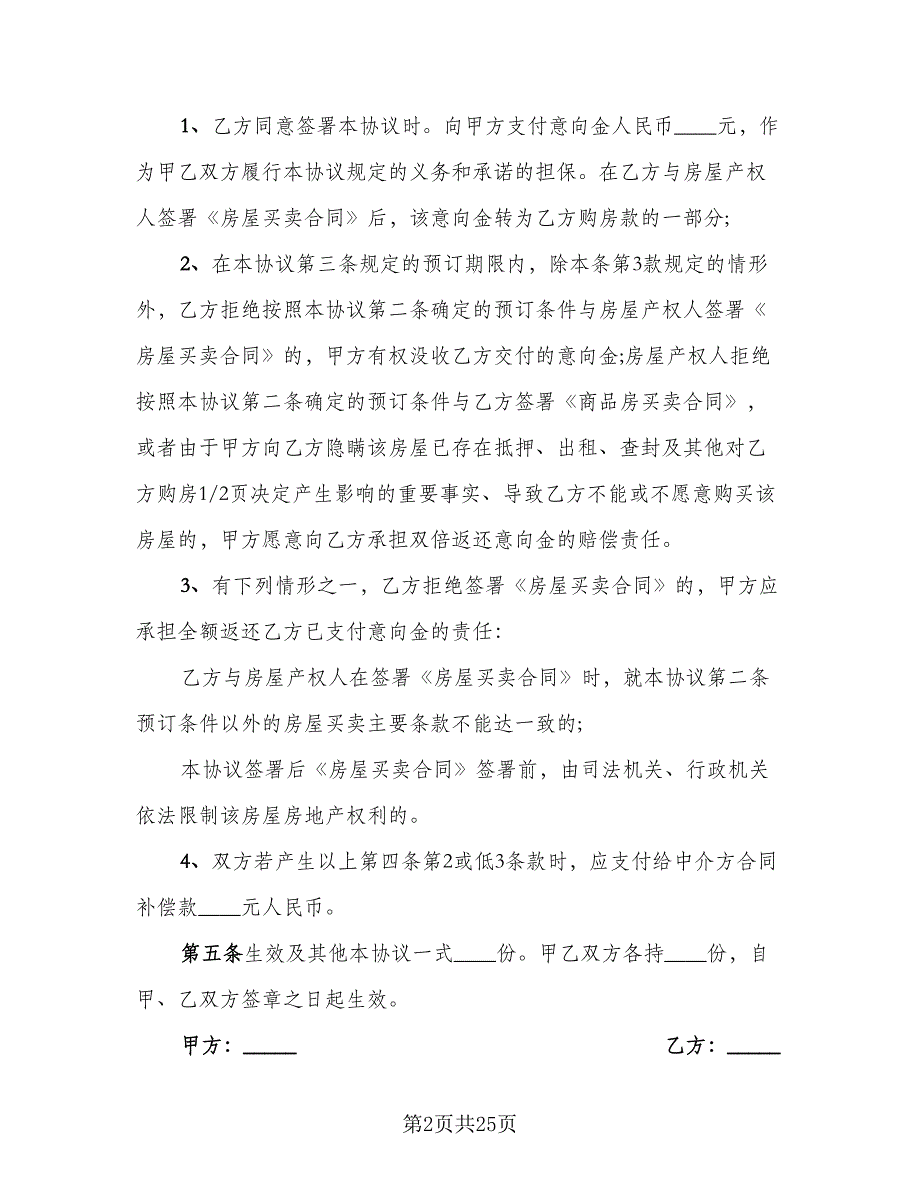 1、乙方同意签署本协议时。向甲方支付意向金人民币____元，作
为甲乙双方履行本协议规定的义务和承诺的担保。在乙方与房屋产权
人签署《房屋买卖合同》后，该意向金转为乙方购房款的一部分;
2、在本协议第三条规定的预订期限内，除本条第3款规定的情形
外，乙方拒绝按照本协议第二条确定的预订条件与房屋产权人签署《
房屋买卖合同》的，甲方有权没收乙方交付的意向金;房屋产权人拒绝
按照本协议第二条确定的预订条件与乙方签署《商品房买卖合同》，
或者由于甲方向乙方隐瞒该房屋已存在抵押、出租、查封及其他对乙
方购房1/2页决定产生影响的重要事实、导致乙方不能或不愿意购买该
房屋的，甲方愿意向乙方承担双倍返还意向金的赔偿责任。
3、有下列情形之一，乙方拒绝签署《房屋买卖合同》的，甲方应
承担全额返还乙方已支付意向金的责任：
乙方与房屋产权人在签署《房屋买卖合同》时，就本协议第二条
预订条件以外的房屋买卖主要条款不能达一致的;
本协议签署后《房屋买卖合同》签署前，由司法机关、行政机关
依法限制该房屋房地产权利的。
4、双方若产生以上第四条第2或低3条款时，应支付给中介方合同
补偿款____元人民币。
第五条生效及其他本协议一式____份。甲乙双方各持____份，自
甲、乙双方签章之日起生效。
甲方：_____ 乙方：_____
第2页共25页